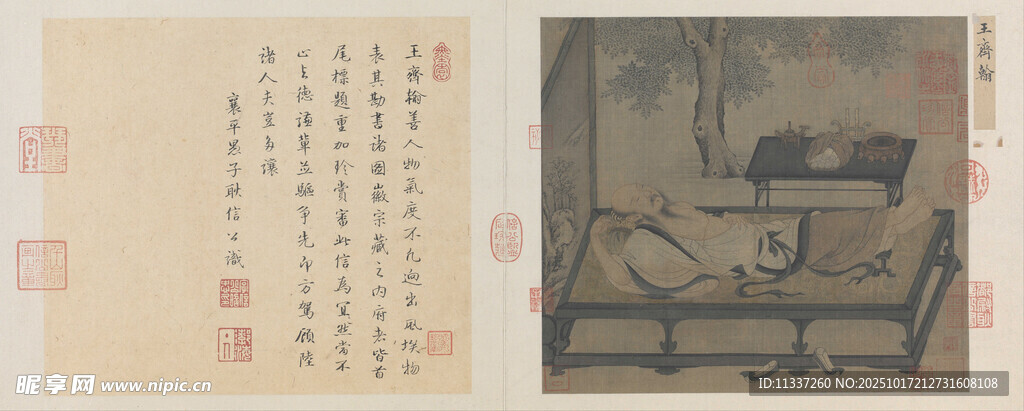 王齊翰
王齊翰善人物氣度不凡迥出風埃物
表其勘書諸圖徽宗藏之內府者皆首
尾標題重加珍賞審此信爲冥然當不
止与德謙輩並驅爭先即方駕顧陸
諸人夫豈多讓
襄平愚子耿信公識
昵享网 www.nipic.cn
ID:11337260 NO:20251017212731608108